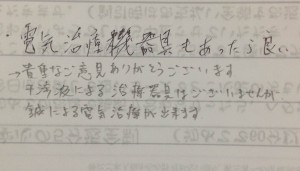 ・電気治療機器具もあったら良い
→貴重なご意見ありがとうございます
干渉波による治療器具はございませんが
鍼による電気治療が出来ます